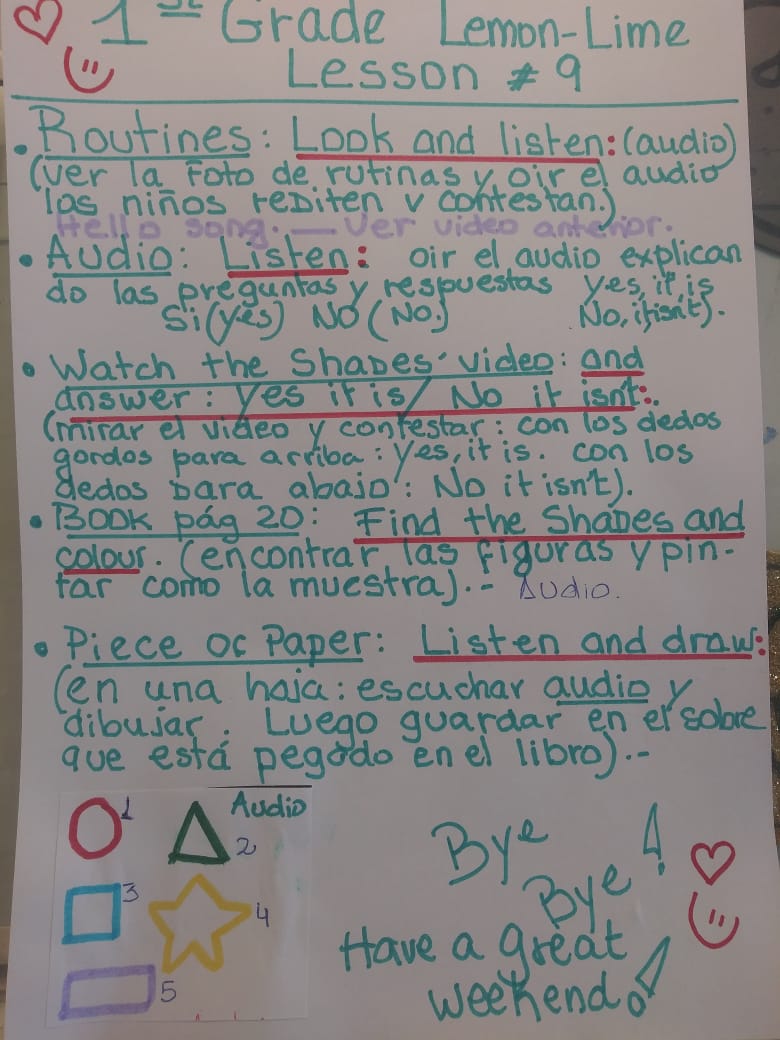 1st Grade Lemon-Lime
Lesson # 9
• Routines: Look and listen: (audio)
(ver la foto de rutinas y oir el audio
los niños repiten y contestan.)
Hello song. — Ver video anterior.
• Audio: Listen: oir el audio explican
do las preguntas y respuestas yes, it is
Si (yes) NO (No.) No, it isn't).
• Watch the Shapes' video: and
answer: Yes it is/ No it isn't:.
(mirar el video y contestar: con los dedos
gordos para arriba: Yes, it is. con los
dedos para abajo: No it isn't).
• Book pág 20: Find the Shapes and
colour. (encontrar las figuras y pin-
tar como la muestra).- Audio.
• Piece of Paper: Listen and draw:
(en una hoja: escuchar audio y
dibujar. Luego guardar en el sobre
que está pegado en el libro).-
Audio
1
2
3
4
5
Bye
Bye!
Have a great
weekend!